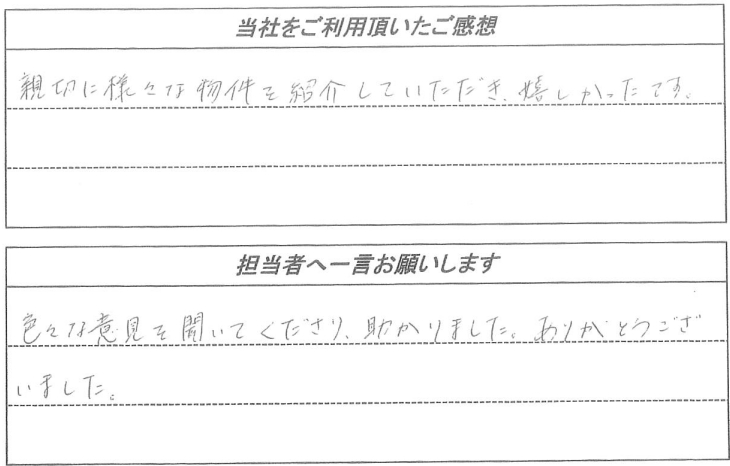 当社をご利用頂いたご感想
親切に様々な物件を紹介していただき、嬉しかったです。
担当者へ一言お願いします
色々な意見を聞いてくださり、助かりました。ありがとうござ
いました。